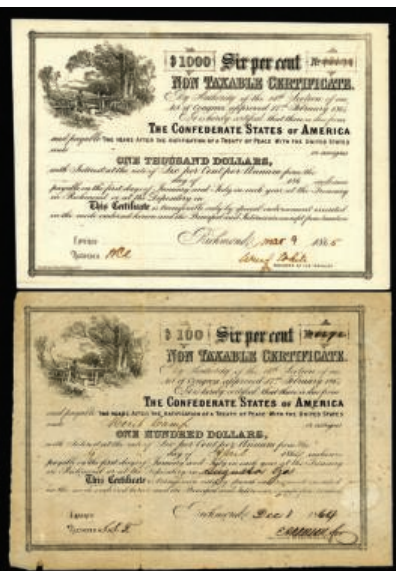 $1000 Six per cent No
NON TAXABLE CERTIFICATE.
By Authority of the 14th Section of an
Act of Congress approved 17th February 1864
is hereby certified that there is due from
THE CONFEDERATE STATES OF AMERICA
and payable TWO YEARS AFTER THE RATIFICATION OF A TREATY OF PEACE WITH THE UNITED STATES
unto or assigns
ONE THOUSAND DOLLARS,
with Interest at the rate of Six per Cent per Annum from the
day of 186 inclusive
payable on the first days of January and July in each year at the Treasury
in Richmond or at the Depository in
This Certificate is transferable only by special endorsement executed
in the mode endorsed hereon and the Principal and Interest are exempt from taxation
Entered Richmond, Mar 9 1865
Recorded
REGISTER OF THE TREASURY
$100 Six per cent No
NON TAXABLE CERTIFICATE.
By Authority of the 14th Section of an
Act of Congress approved 17th February 1864
is hereby certified that there is due from
THE CONFEDERATE STATES OF AMERICA
and payable TWO YEARS AFTER THE RATIFICATION OF A TREATY OF PEACE WITH THE UNITED STATES
unto or assigns
ONE HUNDRED DOLLARS,
with Interest at the rate of Six per Cent per Annum from the
day of April 1864 inclusive
payable on the first days of January and July in each year at the Treasury
in Richmond or at the Depository in Augusta Ga
This Certificate is transferable only by special endorsement executed
in the mode endorsed hereon and the Principal and Interest are exempt from taxation
Entered Richmond, Dec 1 1864
Recorded